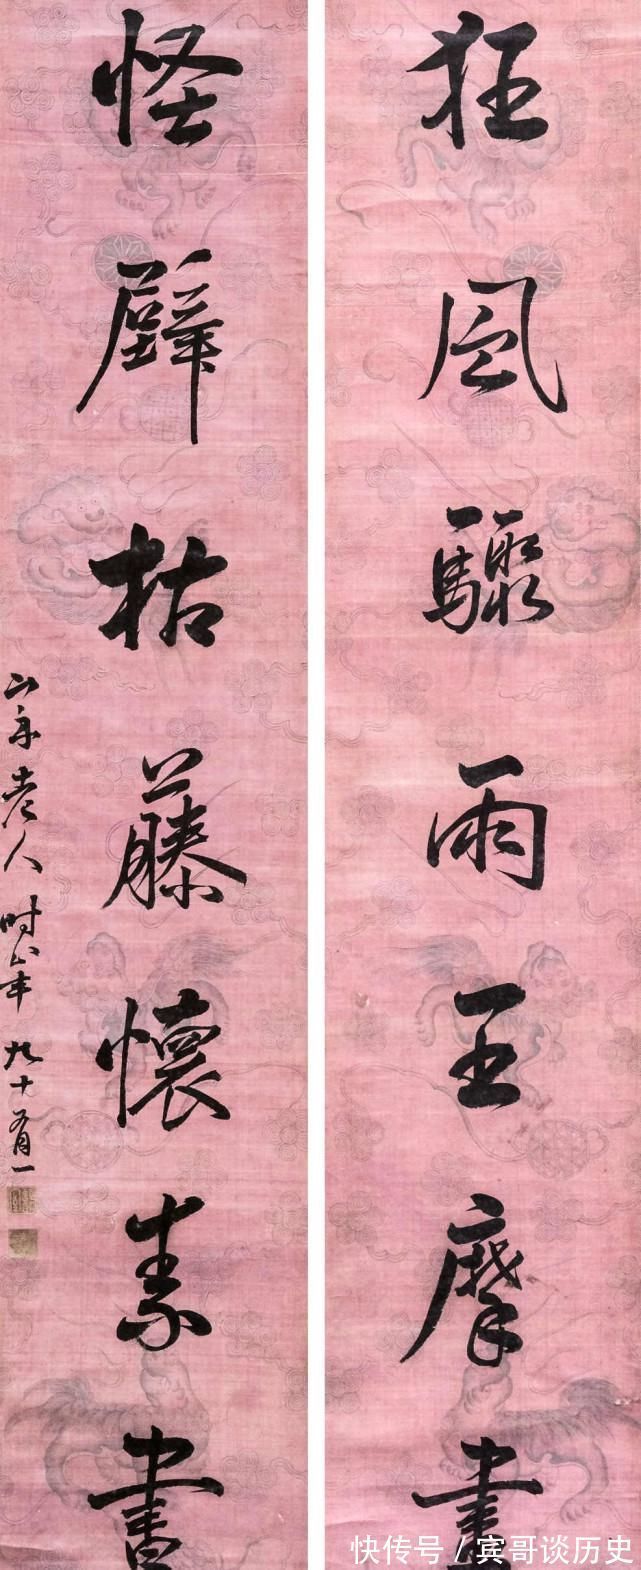 狂風驟雨王摩畫
怪壁枯藤懷素書
山舟老人時年九十有一
快传号 / 宾哥谈历史